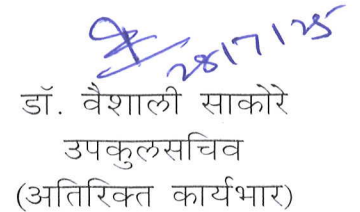 28/7/25
डॉ. वैशाली साकोरे
उपकुलसचिव
(अतिरिक्त कार्यभार)